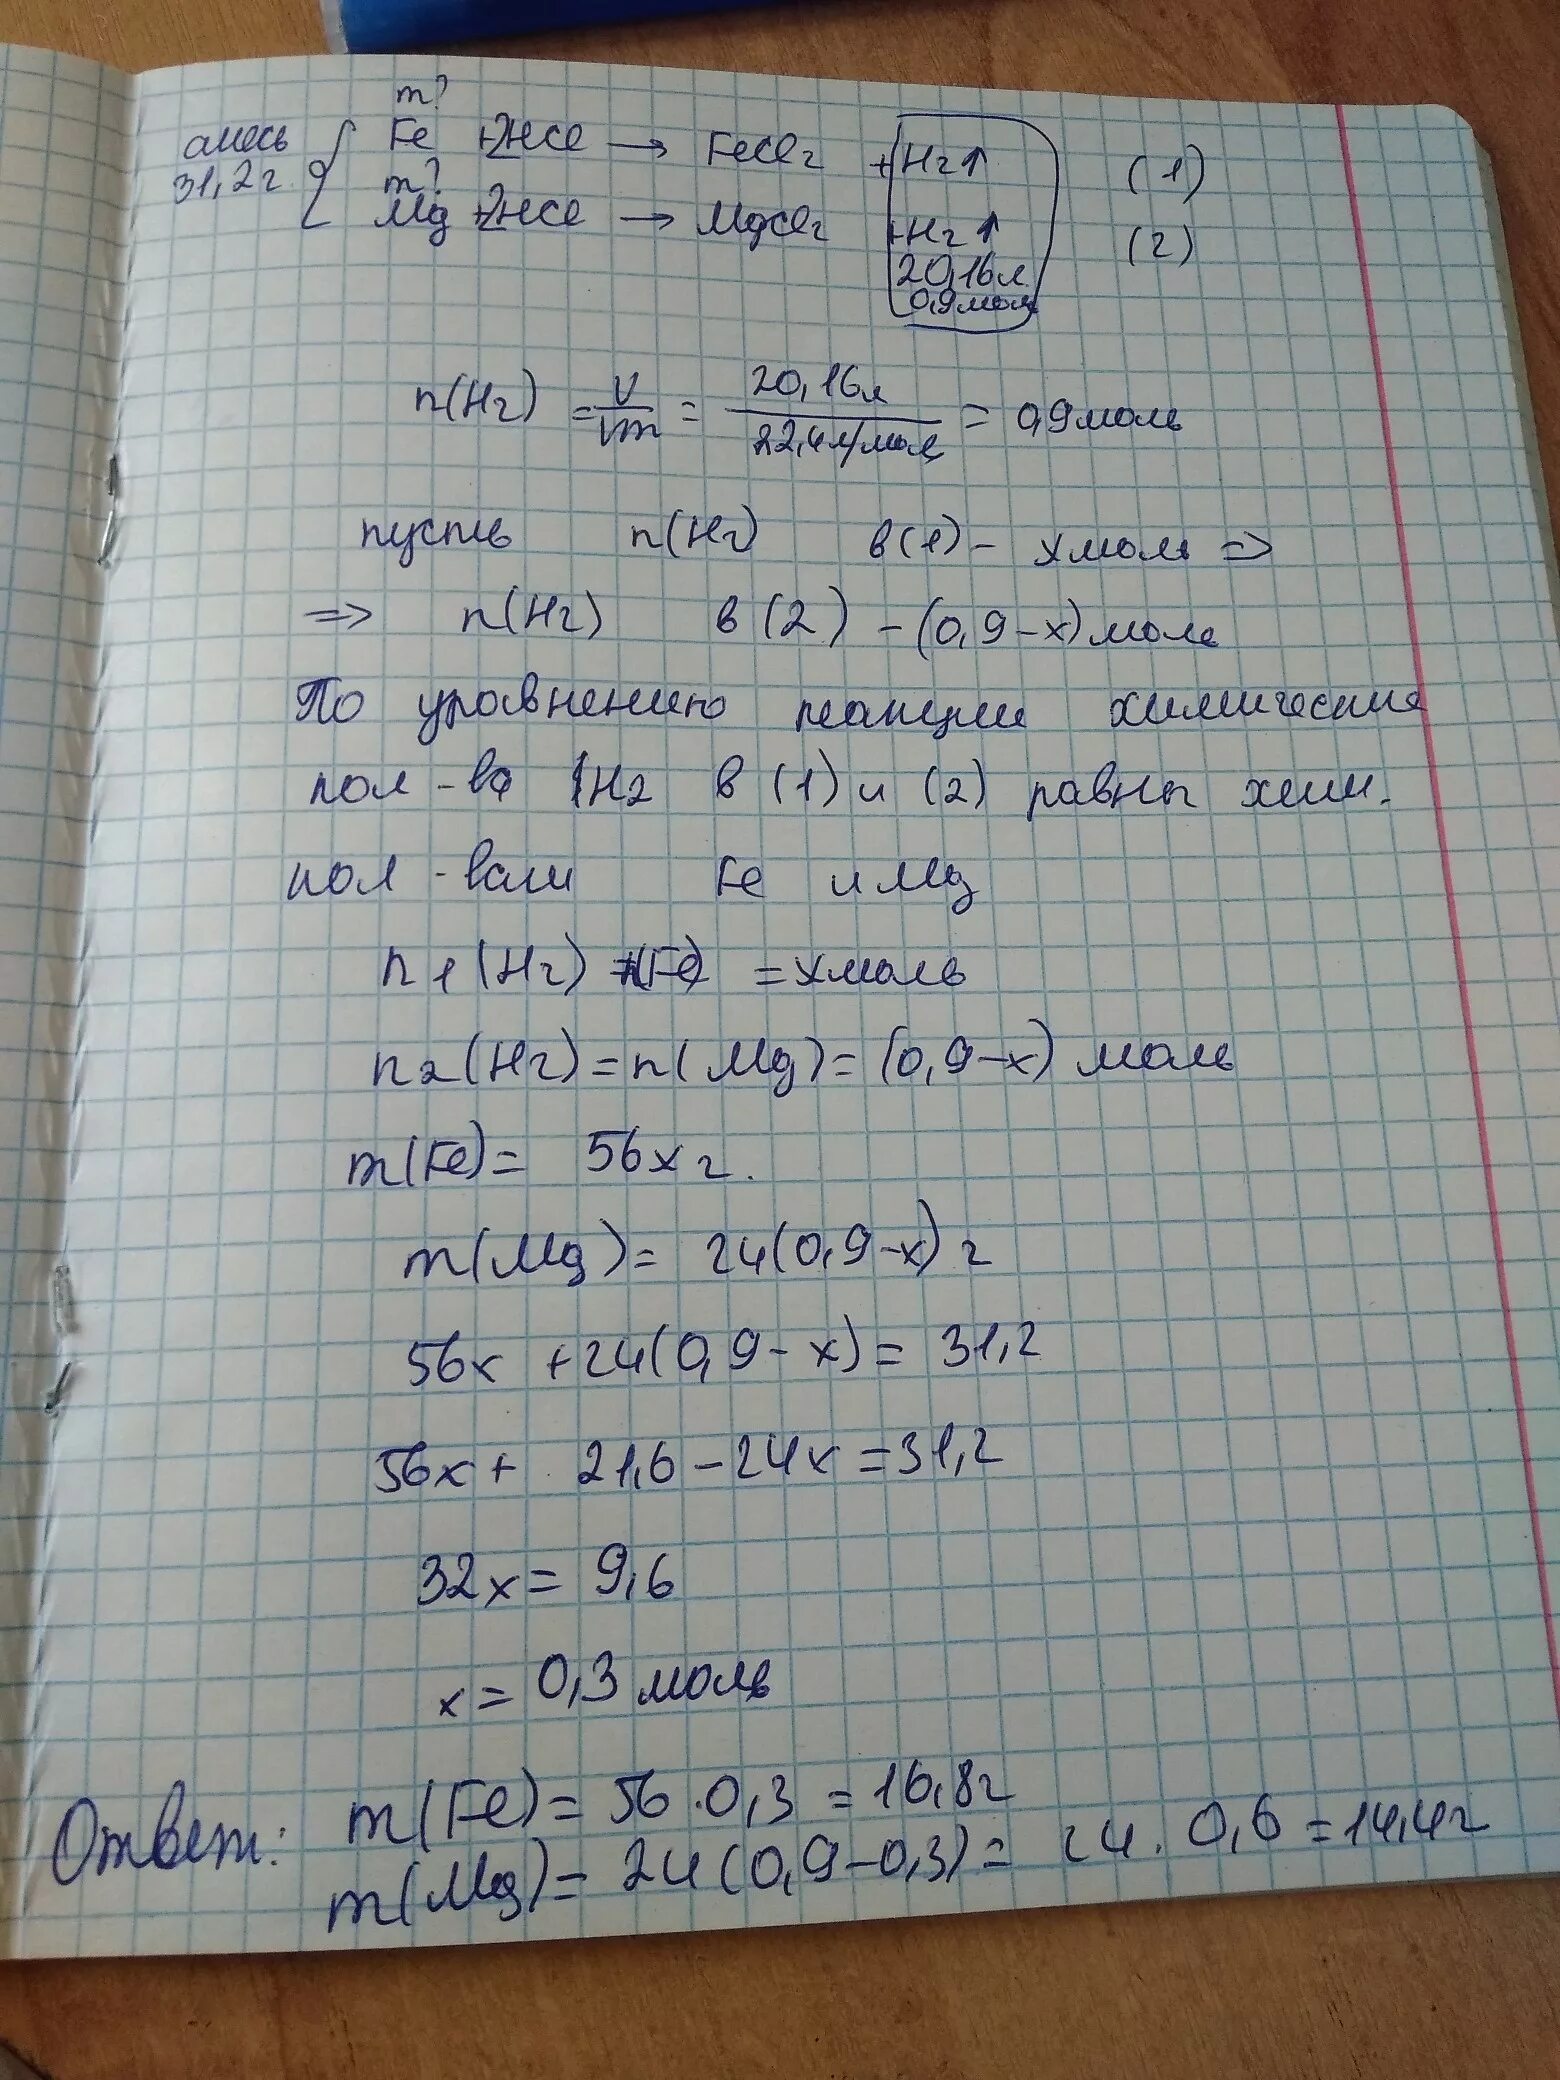 m?
смесь Fe +2HCl → FeCl2 + H2↑ (1)
31,2г m?
Mg +2HCl → MgCl2 + H2↑ (2)
20,16л
0,9моль
n(H2) = V/Vm = 20,16л/22,4л/моль = 0,9моль
пусть n(H2) в(1) - xмоль =>
=> n(H2) в (2) - (0,9-x) моль
По уравнению реакции химические
кол-ва H2 в (1) и (2) равны хим.
кол-вам Fe и Mg
n1(H2) = n(Fe) = xмоль
n2(H2) = n(Mg) = (0,9-x) моль
m(Fe) = 56x г.
m(Mg) = 24(0,9-x) г
56x +24(0,9-x) = 31,2
56x + 21,6 - 24x = 31,2
32x = 9,6
x = 0,3 моль
Ответ: m(Fe) = 56 · 0,3 = 16,8г
m(Mg) = 24(0,9-0,3) = 24 · 0,6 = 14,4г